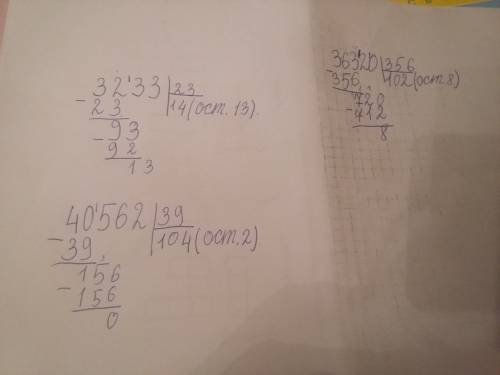 3233 | 23
- 23 14 (ост. 13).
- 93
92
13
36320 | 356
- 356 102 (ост 8)
720
- 712
8
40562 | 39
- 39 104 (ост. 2)
156
- 156
0